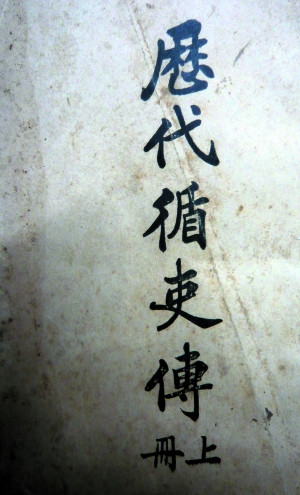 歷代循吏傳
上冊